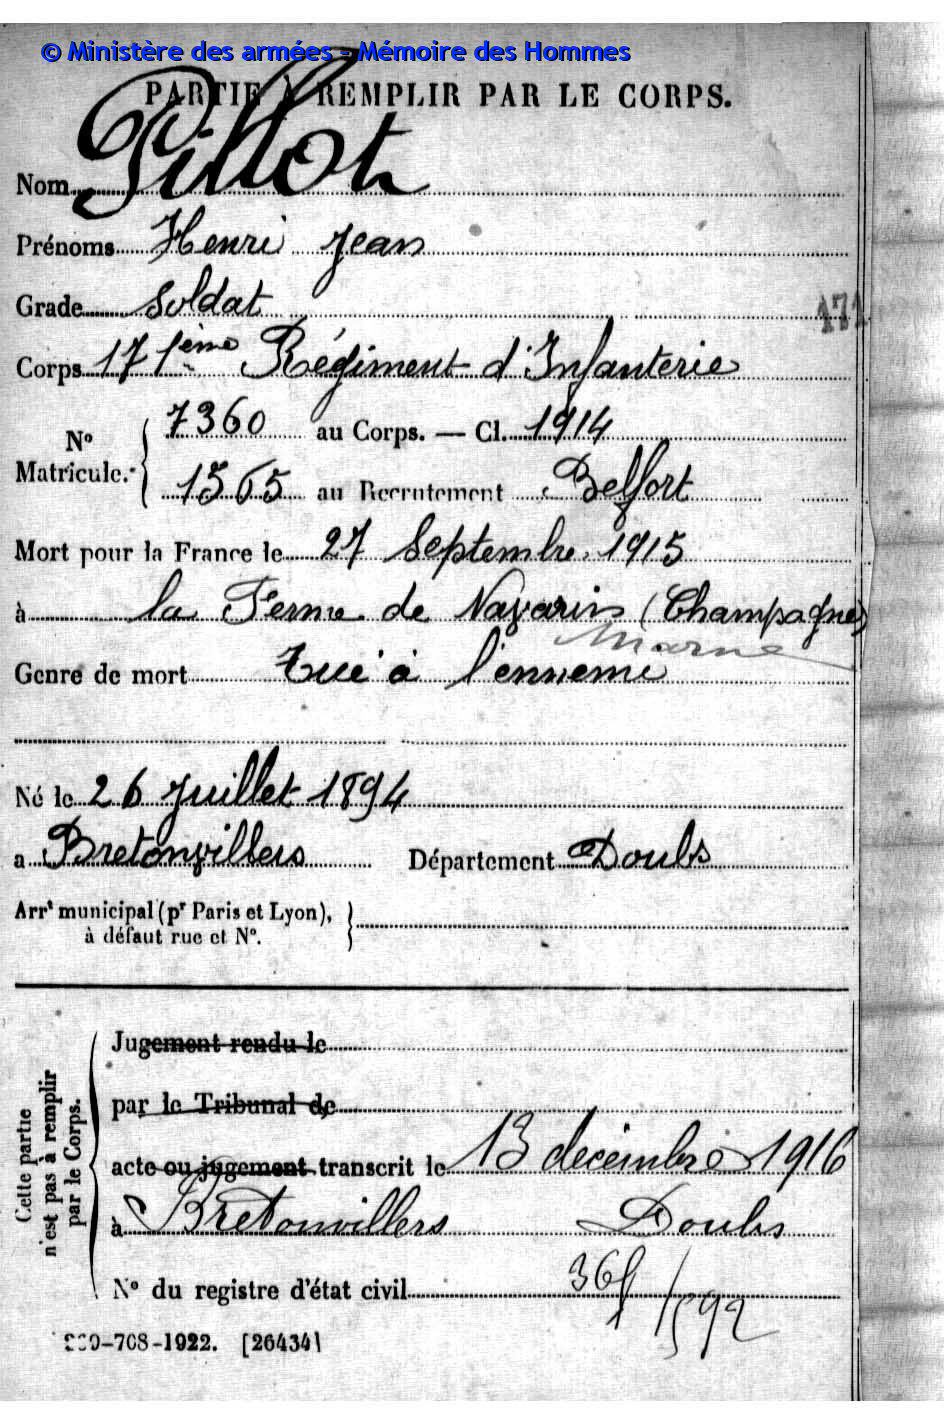 © Ministère des armées - Mémoire des Hommes
PARTIE À REMPLIR PAR LE CORPS.
Nom Pillot
Prénoms Henri Jean
Grade Soldat
171
Corps 171ème Régiment d'Infanterie
N° Matricule. 7360 au Corps. — Cl. 1914
1565 au Recrutement Belfort
Mort pour la France le 27 Septembre 1915
à la Ferme de Navarin (Champagne)
Marne
Genre de mort Tué à l'ennemi
Né le 26 Juillet 1894
a Bretonvillers Département Doubs
Arrt municipal (pr Paris et Lyon),
à défaut rue et N°.
Cette partie
n'est pas à remplir
par le Corps.
Jugement rendu le
par le Tribunal de
acte ou jugement transcrit le 13 décembre 1916
à Bretonvillers Doubs
N° du registre d'état civil
/592
-708-1922. [26434]